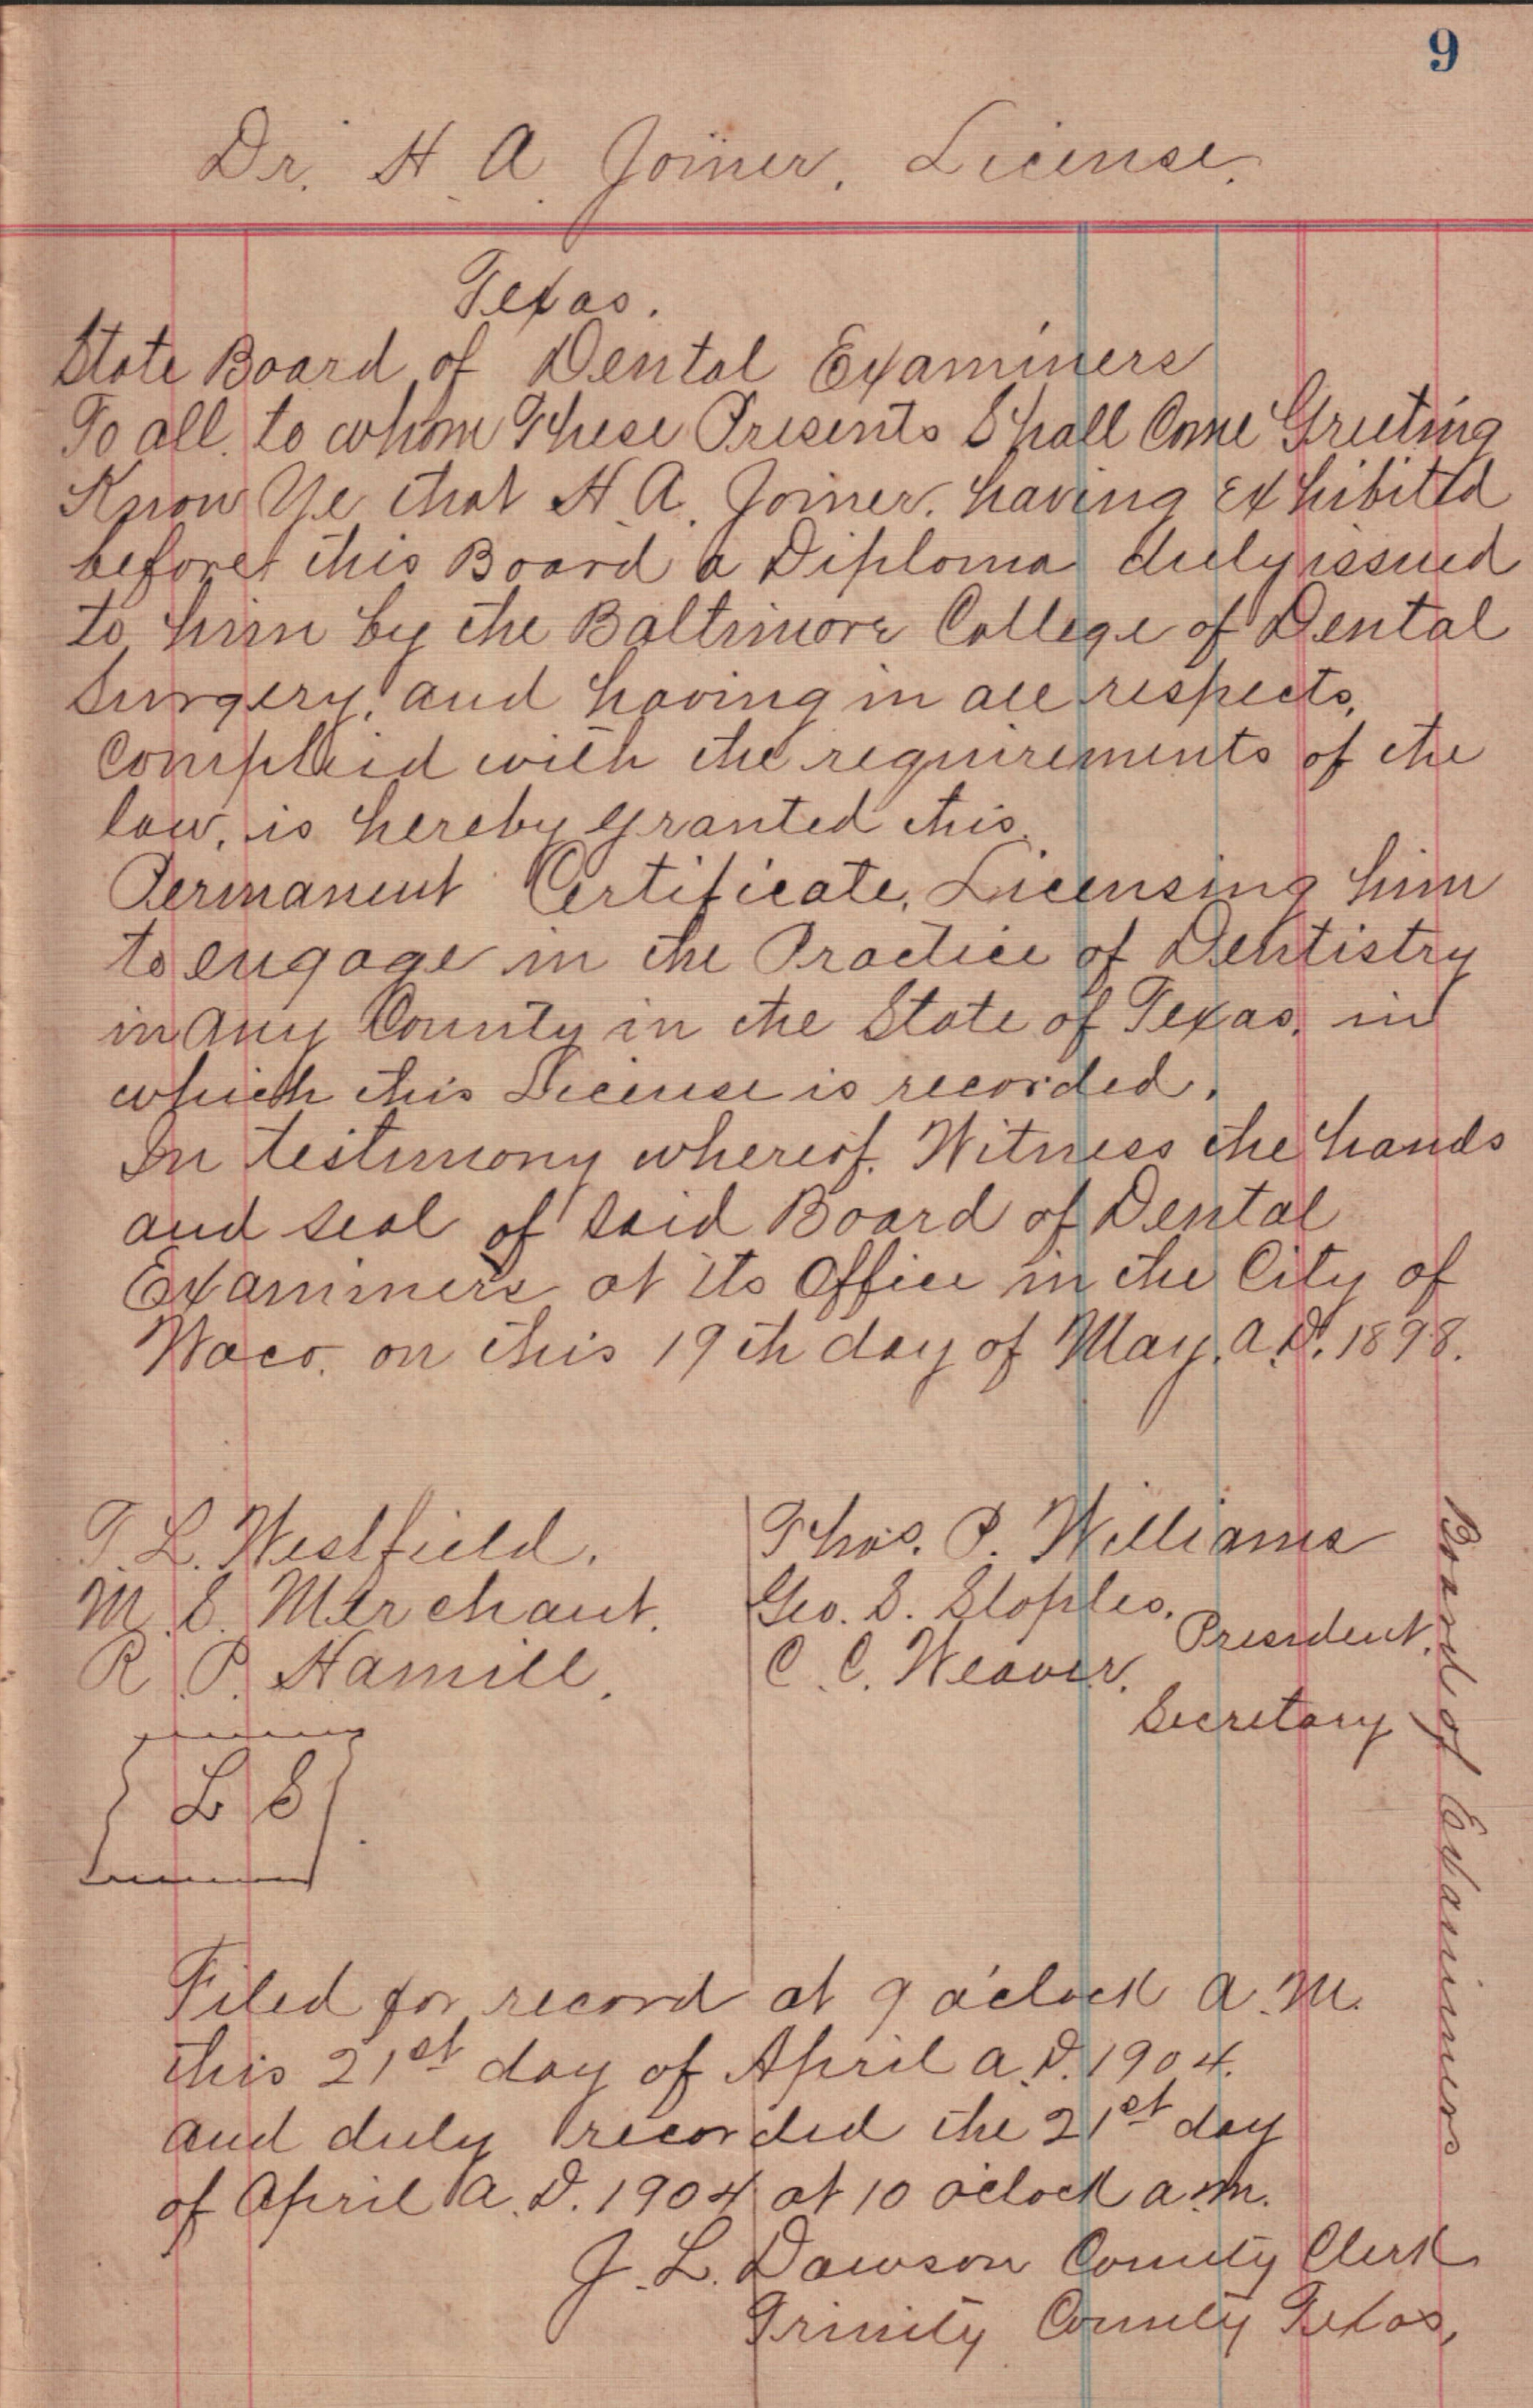 9
Dr. H. A. Joiner. License.
Texas.
State Board of Dental Examiners
To all, to whom These Presents Shall Come Greeting
Know Ye that H. A. Joiner. having exhibited
before this Board a Diploma duly issued
to him by the Baltimore College of Dental
Surgery, and having in all respects,
Complied with the requirements of the
law, is hereby granted this.
Permanent Certificate, Licensing him
to engage in the Practice of Dentistry
in any County in the State of Texas, in
which this License is recorded.
In testimony whereof. Witness the hands
and seal of said Board of Dental
Examiners at its Office in the City of
Waco. on this 19th day of May. A.D. 1898.
T. L. Westfield.
M. S. Merchant.
R. P. Hamill.
L S
Thos. P. Williams
Geo. S. Staples.
President.
C. C. Weaver.
Secretary
Board of Examiners
Filed for record at 9 o'clock A.M.
this 21st day of April A.D. 1904.
and duly recorded the 21st day
of April A.D. 1904 at 10 o'clock a.m.
J. L. Dawson County Clerk
Trinity County Texas,